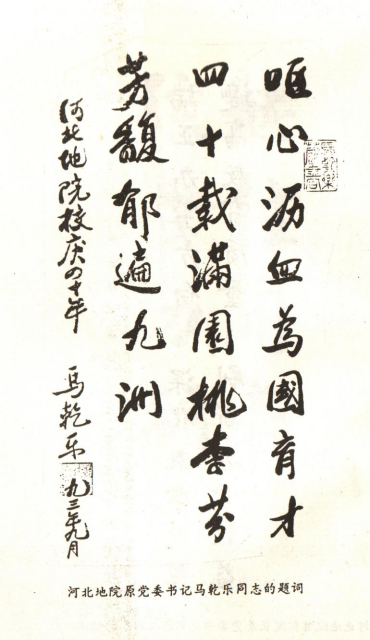 呕心沥血為國育才
四十载滿園桃李芬
芳馥郁遍九洲
河北地院校庆四十年
马乾乐 九三年九月
河北地院原党委书记马乾乐同志的题词